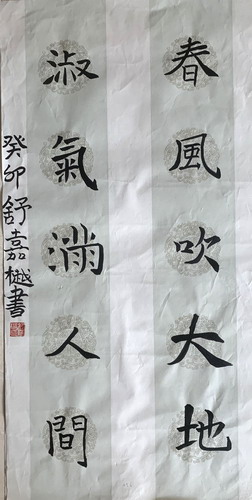 春風吹大地
淑氣滿人間
癸卯舒嘉樾書